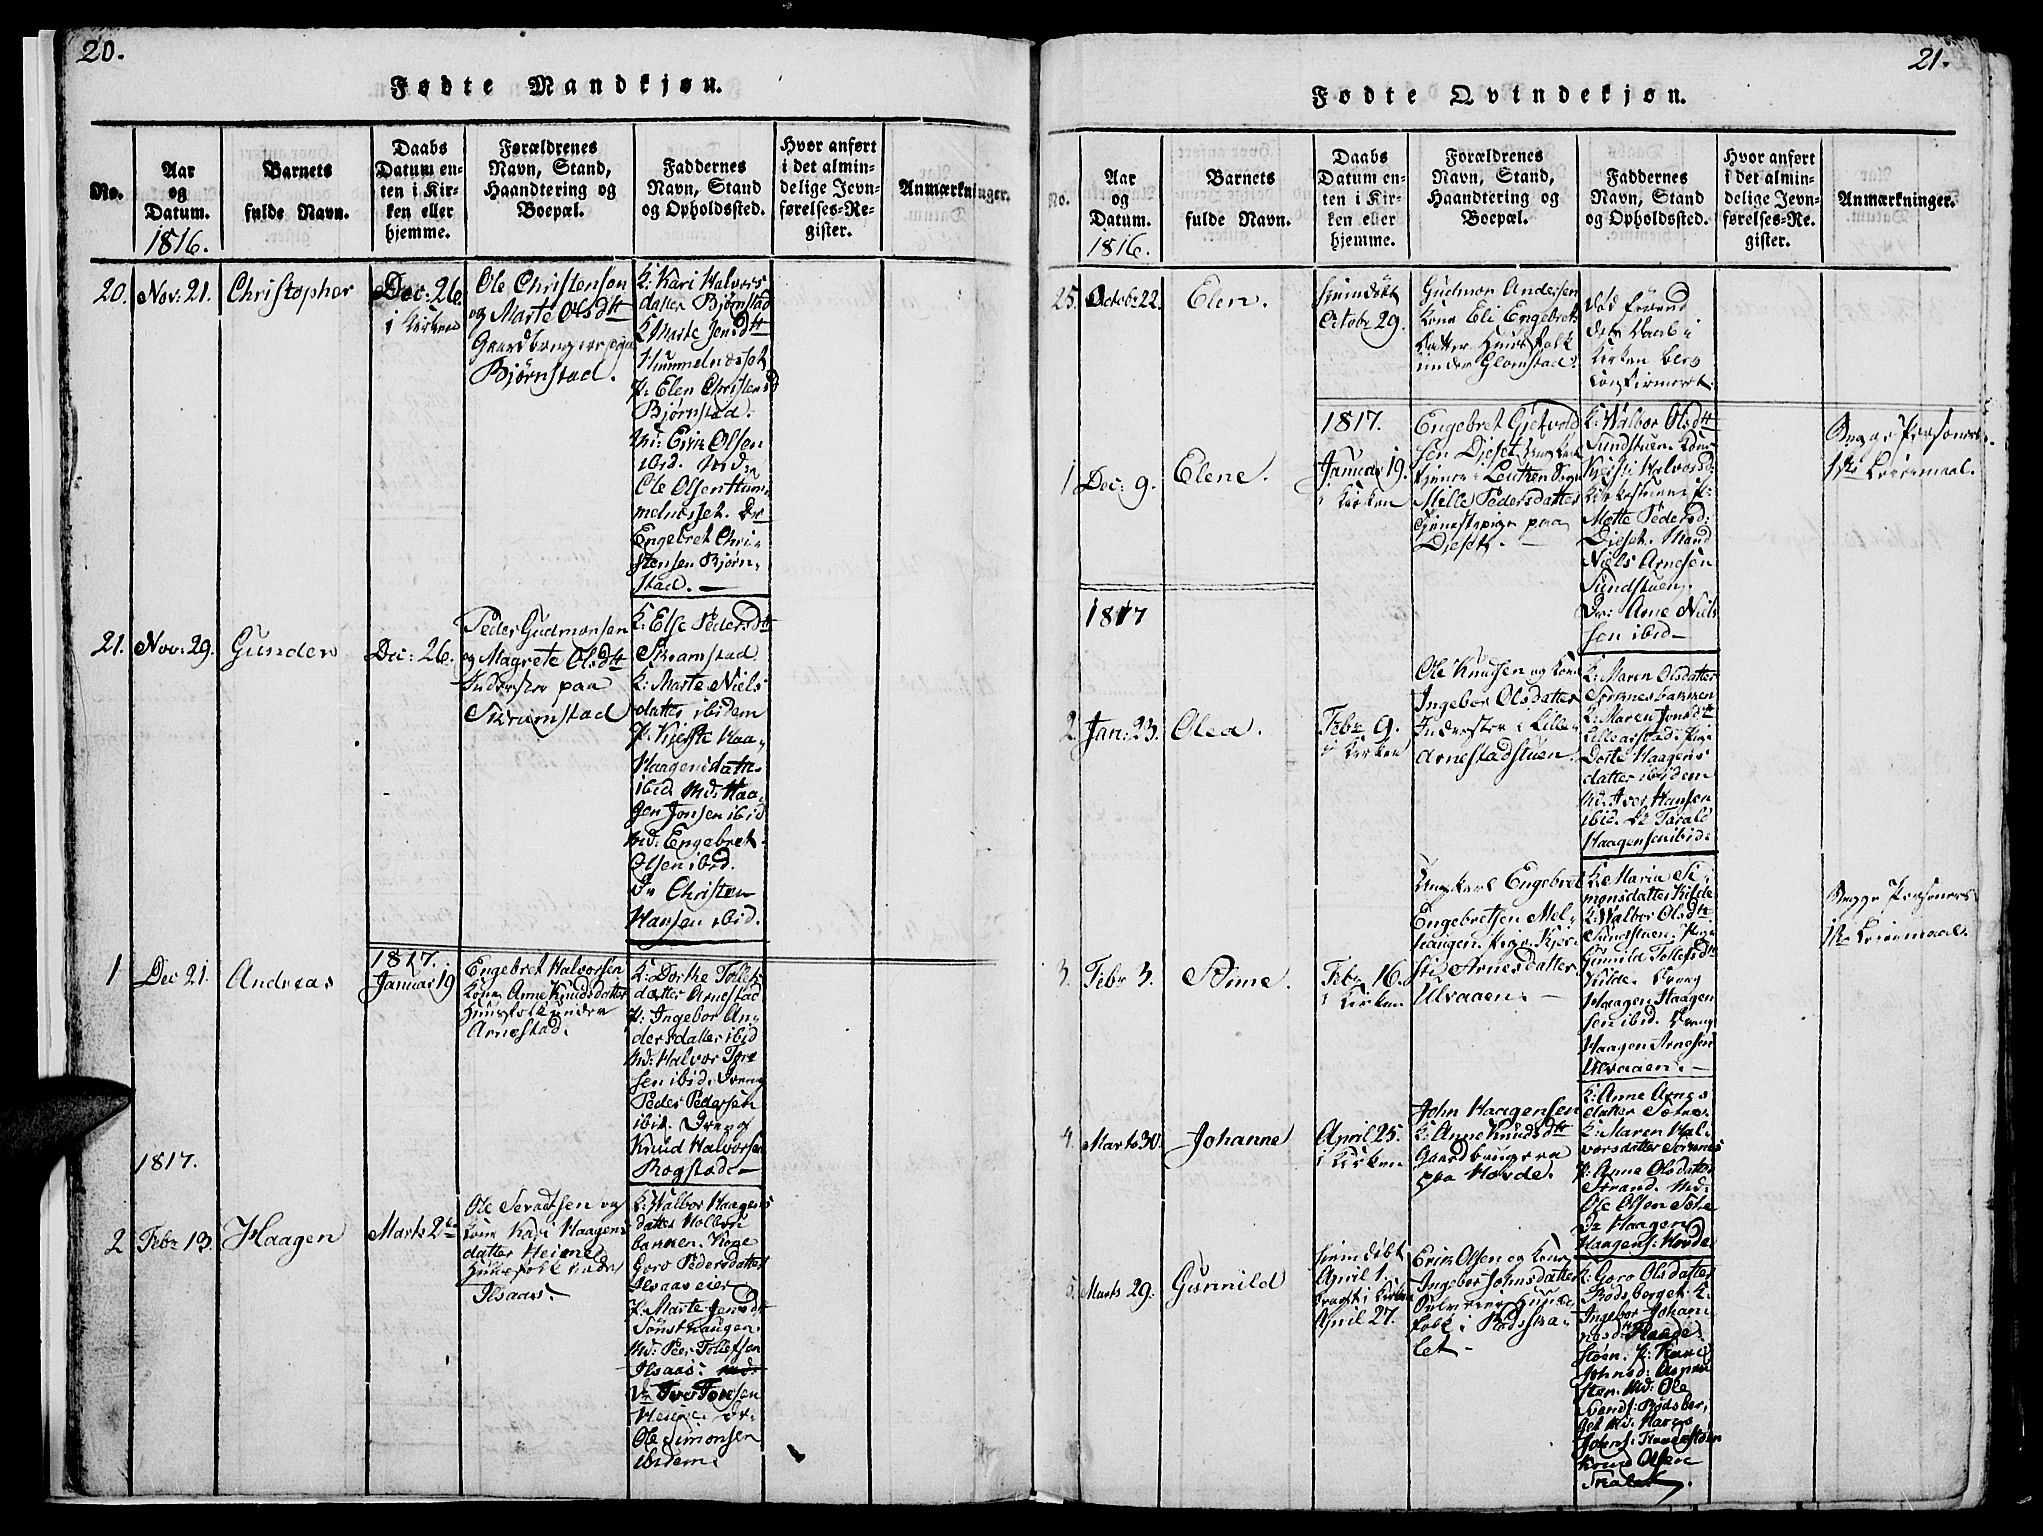 20.
Fødte Mandkjøn.
No.
Aar
og
Datum.
1816.
Barnets
fulde Navn.
Daabs
Datum en-
ten i Kir-
ken eller
hjemme.
Forældrenes
Navn, Stand,
Haandtering og
Boepæl.
Faddernes
Navn, Stand
og Opholdssted.
Hvor anført
i det almin-
delige Jevn-
førelses-Re-
gister.
Anmærkninger.
20.
Nov: 21.
Christopher
Dec: 26.
i Kirken
Ole Christensen
og Marte Olsdtt
Gaardbrugere paa
Bjørnstad.
K: Kari Halvors
datter Bjørnstad
K Marte Jensdtt
Hummelnesset
P: Elen Christensd
Bjørnstad.
Md: Erik Olsen
ibid. Md:
Ole Olsen Hum-
melnesset. Dr
Engebret Chri-
stensen Bjørn-
stad. —
21.
Nov: 29.
Gunder
Dec: 26.
Peder Gudmonsen
og Magrete Olsdtt
Inderster paa
Skramstad
K: Else Pedersdtt
Skramstad
K: Marte Niels
datter ibidem
P: Kjerste Haa-
Haagensdatt.
ibid. Md: Haa-
gen Jonsen ibid
Md: Engebret
Olsen ibid.
Dr Christen
Hansen ibid.
1
Dec 21.
Andreas
1817.
Januar 19
Engebret Halvorsen
Kone Anne Knudsdatter
Huusfolk under
Arnestad.
K: Dorthe Tollefs
datter Arnestad
P: Ingebor An-
dersdatter ibid
Md: Halvor Tore
sen ibid. Dreng
Peder Pedersen
ibid. Dreng
Knud Halvorsen
Rogstad. —
1817.
2
Febr 13.
Haagen
Marts 2de
Ole Sevaldsen og
Kone Kari Haagens
datter Heiene
Huusfolk under
Ilsaas.
K: Walbor Haagens
datter Halben
bakken. Kone
Goro Pedersdatter
Ilsaas eier
P: Marte Jensdtt
Tønsthaugen.
Md: Peer Tollefsen
Ilsaas.
Dr Iver Tonsen
Heiene. Dr.
Ole Simonsen
ibidem.
21.
Fødte Qvindekjøn.
No.
Aar
og
Datum.
1816.
Barnets
fulde Navn.
Daabs
Datum en-
ten i Kir-
ken eller
hjemme.
Forældrenes
Navn, Stand,
Haandtering og
Boepæl.
Faddernes
Navn, Stand
og Opholdssted.
Hvor anført
i det almin-
delige Jevn-
førelses-Re-
gister.
Anmærkninger.
25.
Octob: 22.
Elen.
Hjemdøbt
Octobr 29.
Gudmor Andersen
Kone Eli Engebrets
datter Huusfolk
under Glomstad.
død førend
dets Daab i
Kirken blev
Confirmeret.
1
Dec: 9.
Elene.
1817.
Januar 19.
i Kirken
Engebret Gjetvold
sen Dieset
tjener i Leuthen Sogn
Mille Pedersdatter
tjenestepige paa
Dieset. —
K: Walbor Olsdtt
Sundstuen. Kone
Kjersti Halvorsd.
Kirkestuen. P:
Mette Pedersd:
Dieset. Mand
Niels Arnesen
Sundstuen.
Dr: Arne Niels
sen ibid —
Begge Personers
1ste Leiermaal.
1817
2
Jan: 23.
Olea.
Febr 9.
i Kirken
Ole Knudsen og Kone
Ingebor Olsdatter
Inderster i Lille-
Arnestadstuen.
K: Maren Olsdatter
Sørnesbakken
K: Maren Jonsdtt
Lillearstad. Pige
Dorte Haagens
datter ibidem
Md: Iver Hansen
ibid. Dr Tarald
Haagensen ibid.
3.
Febr 3.
Anne.
Febr 16.
i Kirken
Ungkarl Engebret
Engebretsen Mel-
haugen. Pige Kjer-
sti Arnesdatter
Ulvaaen. —
K: Maria Si-
monsdatter Kilde
K: Walbor Olsdtt.
Sundstuen. Pige
Gunild Tollefsdtt
Kilde. Dreng
Haagen Haagen
sen ibid. Dreng
Haagen Arnesen
Ulvaaen. —
Begge Personers
1ste Leiermaal.
4.
Marts 30.
Johanne
April 25.
i Kirken
John Haagensen
K: Anne Knudsdtt
Gaardbrugere
paa Hovde.
K: Anne Arnes
datter Sætre.
K: Maren Hal-
vorsdatter Sørnes
P: Anne Olsdatter
Strand. Md:
Ole Olsen Sætre
Dr Haagen
Haagens: Hovde
5.
Marts 29.
Gunnild
Hjemdøbt
April 1.
bragt i Kirken
April 27.
Erik Olsen og Kone
Ingebor Johnsdatter
Huus
folk i Rødsstra-
let —
K: Goro Olsdatter
Rødsberget. K.
Ingebor Johan-
nesdtt Haade-
støen. P: Kari
Johnsd: Aasmul
støn. Md: Ole
Svends: Rødsber-
get Md: Hans
Johns: Haadestøen
Knud Olsen
Stralet.